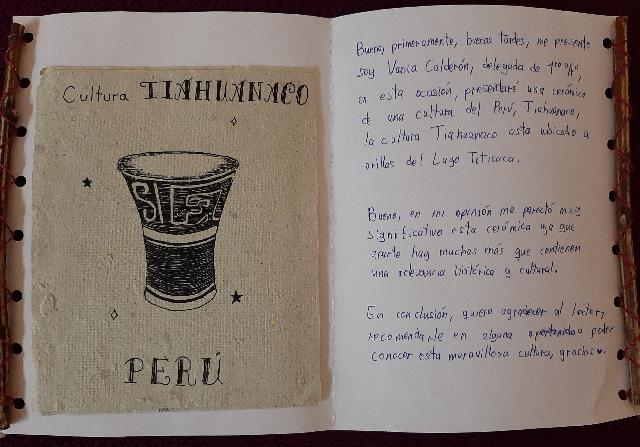 Cultura TIAHUANACO
PERÚ
Bueno, primeramente, buenas tardes, me presento
soy Vania Calderón, delegada de 1ro "A",
en esta ocasión, presentaré una cerámica
de una cultura del Perú, Tiahuanaco,
la cultura Tiahuanaco esta ubicado a
orillas del Lago Titicaca.
Bueno, en mi opinión me pareció muy
significativo esta cerámica ya que
aparte hay muchas más que contienen
una relevancia histórica y cultural.
En conclusión, quiero agradecer al lector,
recomendarle en alguna oportunidad poder
conocer esta maravillosa cultura, gracias♥.